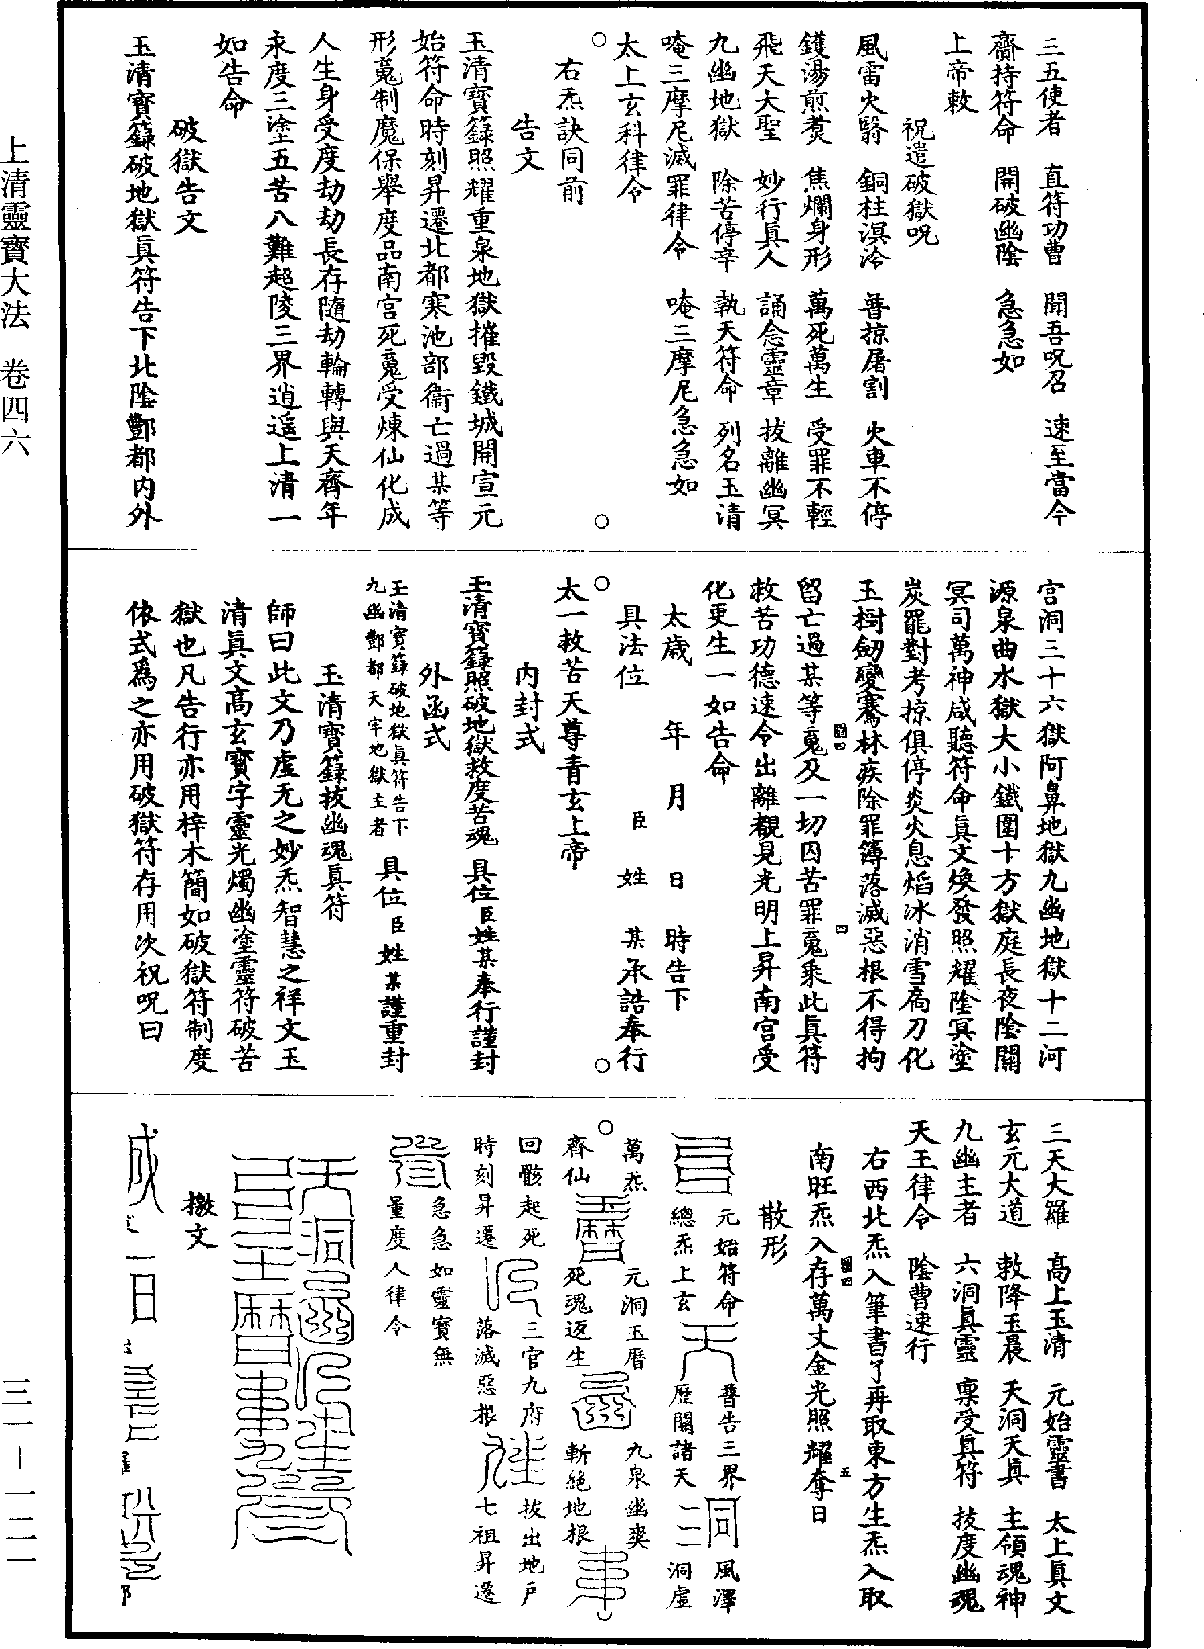 上清靈寶大法 卷四六
三一－一二一
三五使者 直符功曹 聞吾呪召 速至當今
齋持符命 開破幽陰 急急如
上帝敕
祝遣破獄呪
風雷火翳 銅柱溟泠 普掠屠割 火車不停
鑊湯煎煑 焦爛身形 萬死萬生 受罪不輕
飛天大聖 妙行真人 誦念靈章 拔離幽冥
九幽地獄 除苦停辛 執天符命 列名玉清
唵三摩尼滅罪律令 唵三摩尼急急如
太上玄科律令
○ ○
右炁訣同前
告文
玉清寶籙照耀重泉地獄摧毀鐵城開宣元
始符命時刻昇遷北都寒池部衞亡過某等
形䰟制魔保舉度品南宫死䰟受煉仙化成
人生身受度劫劫長存隨劫輪轉與天齊年
永度三塗五苦八難超陵三界逍遥上清一
如告命
破獄告文
玉清寶籙破地獄真符告下北陰酆都内外
宫洞三十六獄阿鼻地獄九幽地獄十二河
源泉曲水獄大小鐵圍十方獄庭長夜陰關
冥司萬神咸聽符命真文煥發照耀陰冥塗
炭罷對考掠俱停炎火息焰冰消雪腐刀化
玉樹劒變騫林疾除罪簿落滅惡根不得拘
留亡過某等䰟及一切囚苦罪䰟乘此真符
救苦功德速令出離覩見光明上昇南宫受
化更生一如告命
太歲 年 月 日 時告下
具法位 臣 姓 某承誥奉行
○ ○
太一救苦天尊青玄上帝
内封式
玉清寶籙照破地獄救度苦魂 具位臣姓某奉行謹封
外函式
玉清寶籙破地獄真符告下
九幽酆都天牢地獄主者 具位臣姓某謹重封
玉清寶籙拔幽魂真符
師曰此文乃虚无之妙炁智慧之祥文玉
清真文高玄寶字靈光燭幽塗靈符破苦
獄也凡告行亦用梓木簡如破獄符制度
依式爲之亦用破獄符存用次祝呪曰
三天大羅 高上玉清 元始靈書 太上真文
玄元大道 敕降玉晨 天洞天真 主領魂神
九幽主者 六洞真靈 禀受真符 拔度幽魂
天王律令 陰曹速行
右西北炁入筆書了再取東方生炁入取
南旺炁入存萬丈金光照耀奪日
散形
元始符命 普告三界 風澤
總炁上玄 歷關諸天 一一洞虚
○
萬炁 元洞玉曆 九泉幽爽
齊仙 死魂返生 斬絶地根
回骸起死 三官九府 拔出地戶
時刻昇遷 落滅惡根 七祖昇遷
急急如靈寶無
量度人律令
檄文